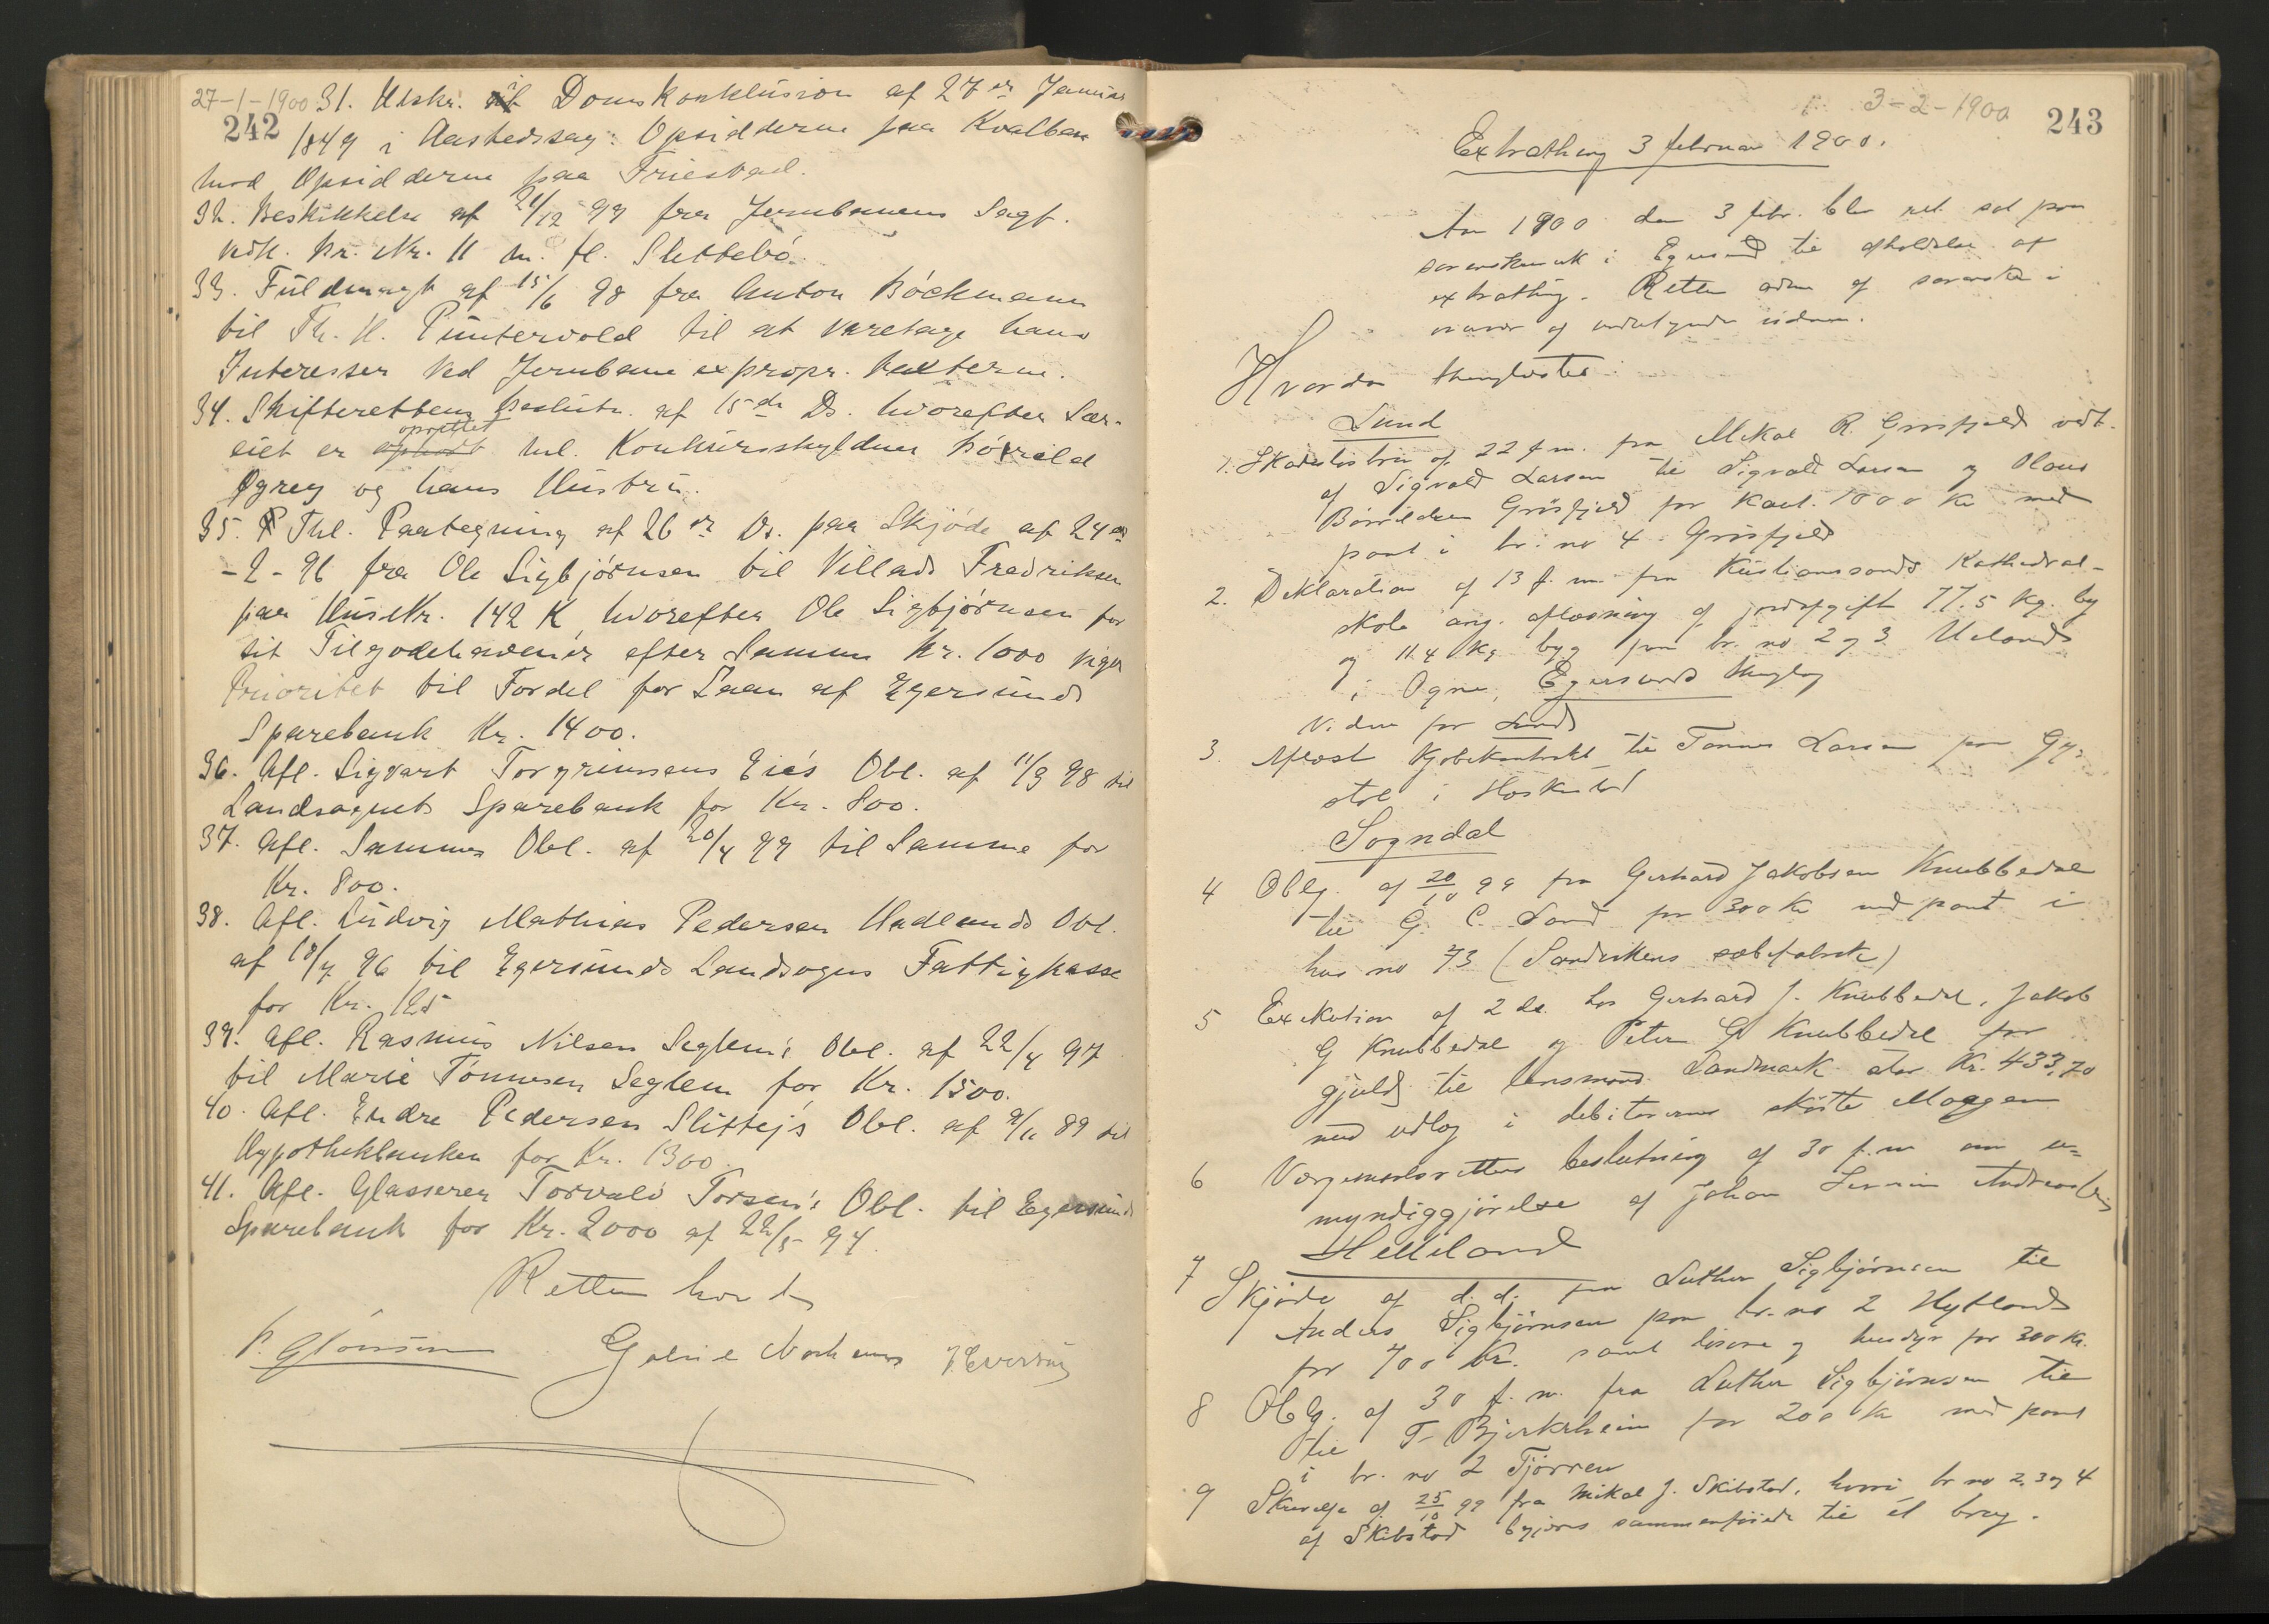 27-1-1900 31. Utskr. af Domskonklusion af 27de Januar
242 1849 i Aastedssag: Opsidderne paa Kvalben
mod Opsidderne paa Friestad.
32. Beskikkelse af 21/12 99 fra Jernbanens Sagf.
vedk. Br. Nr. 11 m. fl. Slettebö.
33. Fuldmagt af 15/6 98 fra Anton Böckmann
til Th. H. Puntervold til at varetage hans
Interesser ved Jernbane expropr. taxterne.
34. Skifterettens Beslutn. af 15de Ds. hvorefter Sær-
eiet er ophævt oprettet ml. Konkursskyldner Börrild
Øgrey og hans Hustru.
35. Thl. Paategning af 26de Ds. paa Skjöde af 24de
-2-96 fra Ole Sigbjörnsen til Villads Fredriksen
paa Hus Nr. 142 K, hvorefter Ole Sigbjörnsen for
sit Tilgodehavende efter Samme Kr. 1000 viger
Prioritet til Fordel for Laan af Egersunds
Sparebank Kr. 1400.
36. Afl. Sigvart Torgrimsens Eie's Obl. af 11/3 98 til
Landsognets Sparebank for Kr. 800.
37. Afl. Sammes Obl. af 20/4 99 til Samme for
Kr. 800.
38. Afl. Ludvig Mathias Pedersen Hadlands Obl.
af 18/7 96 til Egersunds Landsogns Fattigkasse
for Kr. 125
39. Afl. Rasmus Nilsen Seglem's Obl. af 22/4 97
til Marie Tönnesen Seglem for Kr. 1500.
40. Afl. Endre Pedersen Slettej's Obl. af 9/11 89 til
Hypothekbanken for Kr. 1300.
41. Afl. Glasserer Torvald Torsen's Obl. til Egersunds
Sparebank for Kr. 2000 af 22/5- 94.
Retten hævet
3-2-1900 243
Extrathing 3 februar 1900.
Aar 1900 den 3 febr. blev ret sat paa
sorenskr. i Egersund til afholdelse af
extrathing. Retten adm. af sorenskr. i
nærvær af undertegnede vidner.
Hvorda thinglæstes:
Lund
1. Skadeslösbrev af 22 f.m. fra Mikal R. Grösfjeld vedt.
af Sigvald Larsen til Sigvald Larsen og Olaus
Börrildsen Grösfjeld for Kaut. 1000 Kr med
pant i br. no 4 Grösfjeld
2. Deklaration af 13 f.m. fra Kristianssands Kathedral-
skole ang. aflösning af jordafgift 77.5 Kg. byg
og 11.4 Kg byg paa br. no 2 og 3 Ueland
i Ogne, Egersunds thinglag
Videre for Lund
3. Aflæst Kjöbekontrakt til Tönnes Larsen paa Gys-
stöl i Höskestöl
Sogndal
4 Oblg. af 20/10 99 fra Gerhard Jakobsen Knubbedal
til G. C. Sand for 300 Kr med pant i
hus no 73 (Sandvikens sæbefabrik)
5 Exekution af 2 ds. hos Gerhard J. Knubbedal, Jakob
G Knubbedal og Peter G Knubbedal for
gjæld til lensmand Sandmark stor Kr. 433,70
med udlæg i debitorernes sköite Maggen
6 Værgemaalsrettens beslutning af 30 f.m om u-
myndiggjörelse af Johan Severin Andreasberg
Helleland
7 Skjöde af d.d. fra Luther Sigbjörnsen til
Anders Sigbjörnsen paa br. no 2 Hytland
for 700 Kr. samt lösöre og husdyr for 300 Kr.
8 Oblg. af 30 f.m. fra Luther Sigbjörnsen til
til T. Bjerkrheim for 200 Kr med pant
i br. no 2 Tjörren
9 Skrivelse af 25/10 99 fra Mikal J. Skibstad, hvori br no 2, 3 og 4
af Skibstad begjæres sammenföiede til et brug.